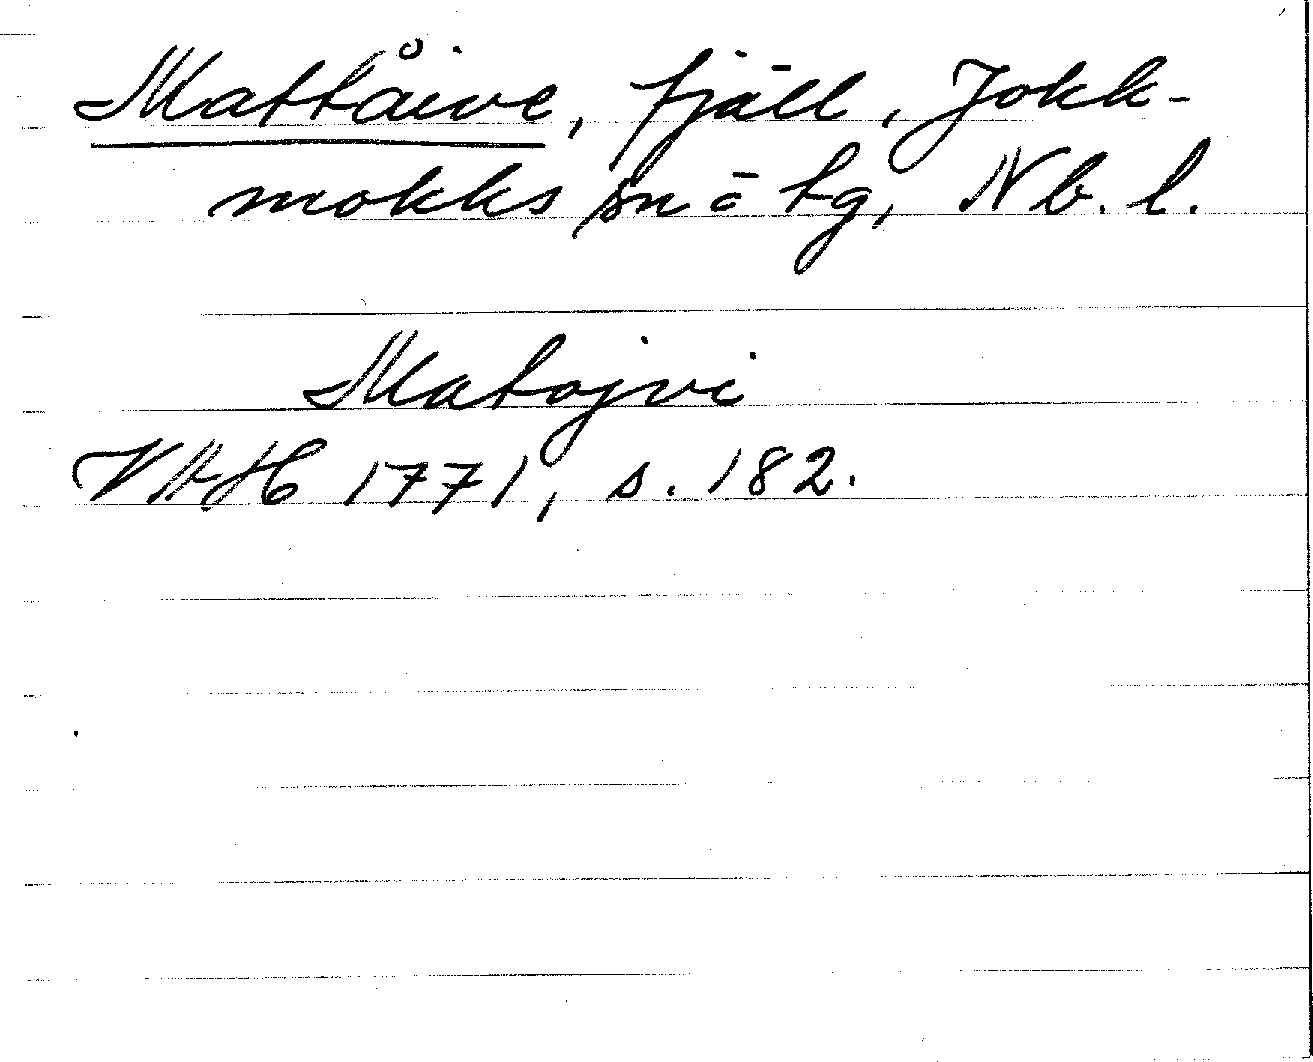 Mattåive, fjäll, Jokk-
mokks sn o tg, Nb. l.
Matojvi
VAH 1771, s. 182.